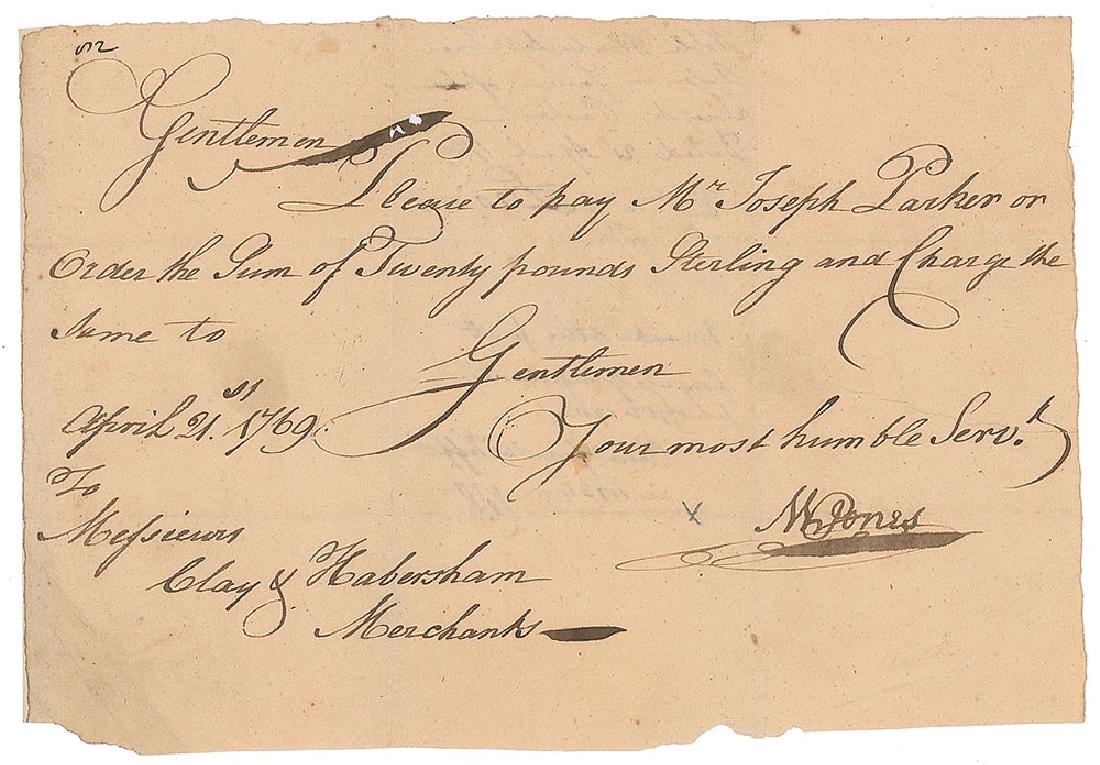 Gentlemen
Please to pay Mr Joseph Parker or
Order the Sum of Twenty pounds Sterling and Charge the
Same to
Gentlemen
April 21.st 1769.
Your most humble Serv.t
To
Messieurs
NWJones
Clay & Habersham
Merchants